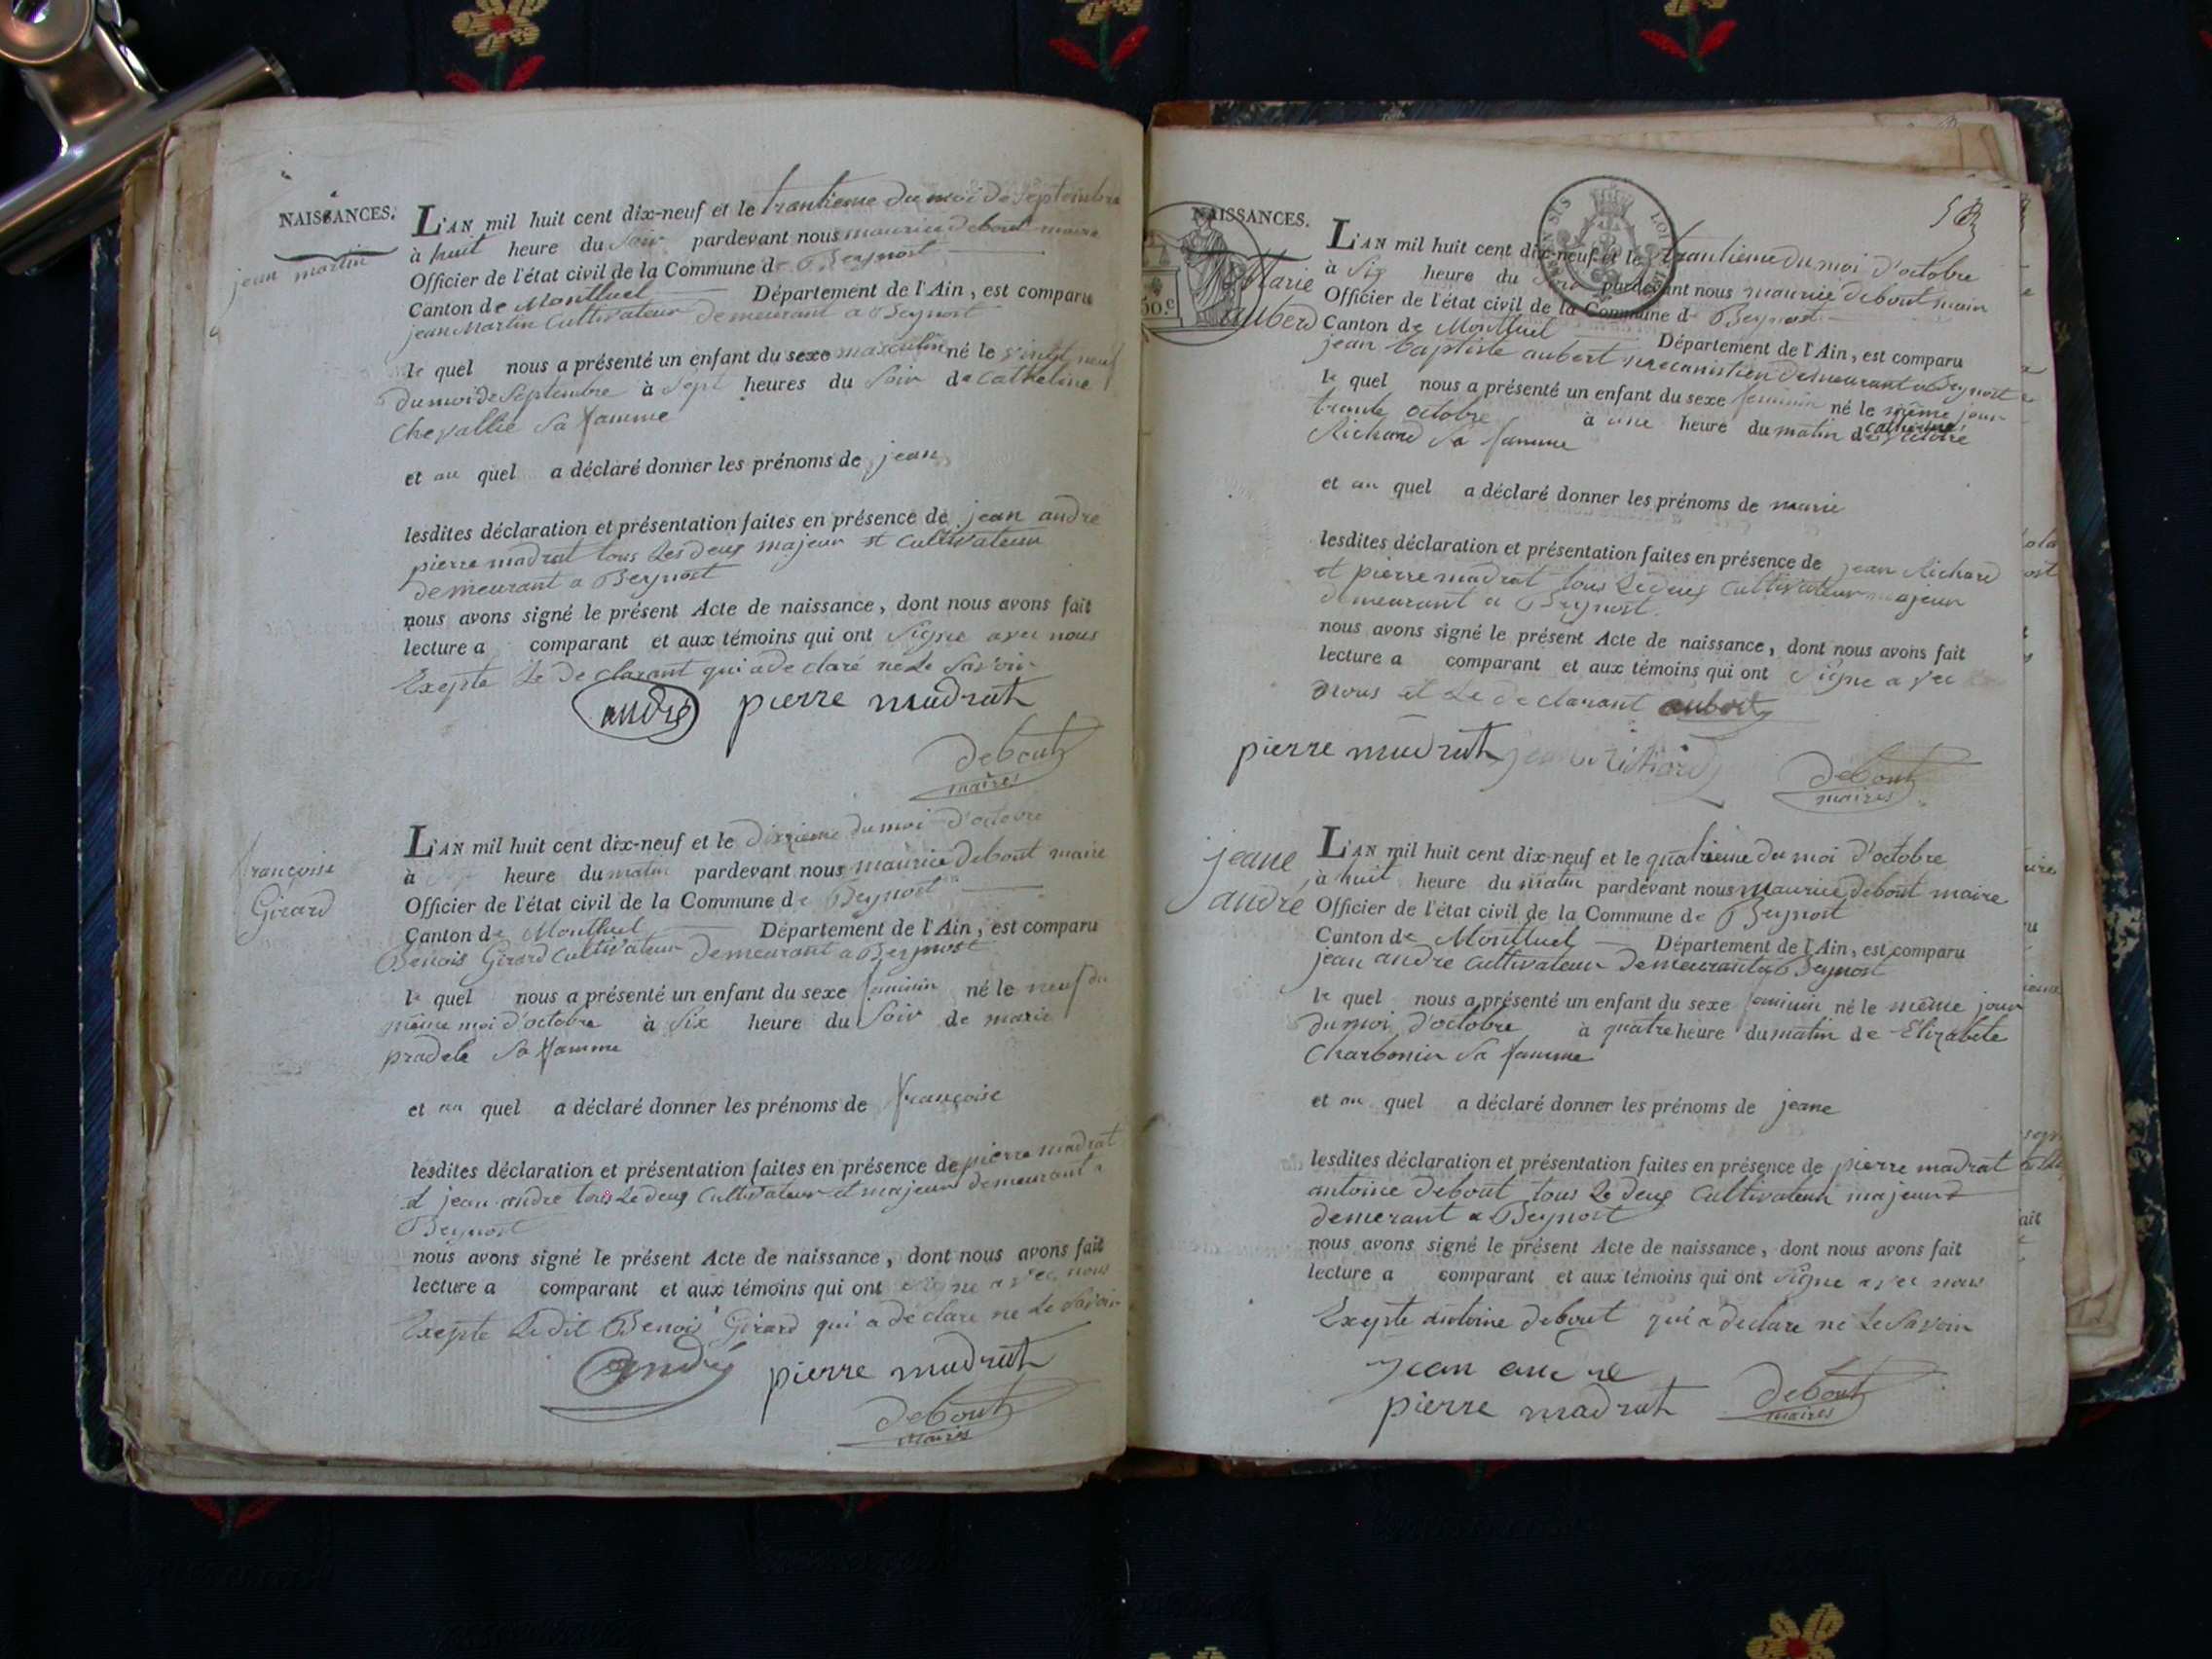 NAISSANCES.
jean martin
L'AN mil huit cent dix-neuf et le trantieme du moi de Septembre
à huit heure du Soir pardevant nous maurice debout maire
Officier de l'état civil de la Commune de Beynost
Canton de Montluel Département de l'Ain, est comparu
jean Martin Cultivateur demeurant a Beynost
le quel nous a présenté un enfant du sexe masculin né le vingt neuf
du moi de Septembre à Sept heures du Soir de Catheline
Chevallie Sa famme
et au quel a déclaré donner les prénoms de jean
lesdites déclaration et présentation faites en présence de jean andre
pierre madrat tous Les deux majeur et Cultivateur
demeurant a Beynost
nous avons signé le présent Acte de naissance, dont nous avons fait
lecture a comparant et aux témoins qui ont Signe avec nous
Exepte Le declarant qui a declaré ne Le Savoir
andré pierre madrat
debout
maires
françoise
Girard
L'AN mil huit cent dix-neuf et le dixzieme du moi d'octovre
à heure du matin pardevant nous maurice debout maire
Officier de l'état civil de la Commune de Beynost
Canton de Montluel Département de l'Ain, est comparu
Benois Girard Cultivateur demeurant a Beynost
le quel nous a présenté un enfant du sexe feminin né le neuf du
même moi d'octobre à Six heure du Soir de marie
pradele Sa famme
et au quel a déclaré donner les prénoms de françoise
lesdites déclaration et présentation faites en présence de pierre madrat
et jean andre tous Le deux Cultivateur et majeur demeurant a
Beynost
nous avons signé le présent Acte de naissance, dont nous avons fait
lecture a comparant et aux témoins qui ont Signe avec nous
Exepte Ledit Benois Girard qui a declare ne Le Savoir
andré pierre madrat
debout
maires
NAISSANCES.
50.c
Marie
auberd
L'AN mil huit cent dix-neuf et le trantieme du moi d'octobre
à Six heure du Soir pardevant nous maurice debout maire
Officier de l'état civil de la Commune de Beynost
Canton de Montluel Département de l'Ain, est comparu
jean baptiste aubert mecanistien demeurant a Beynost
le quel nous a présenté un enfant du sexe feminin né le même jour
trante octobre à une heure du matin de catherine victoire
Richard Sa famme
et au quel a déclaré donner les prénoms de marie
lesdites déclaration et présentation faites en présence de jean Richard
et pierre madrat tous Le deux Cultivateur majeur
demeurant a Beynost
nous avons signé le présent Acte de naissance, dont nous avons fait
lecture a comparant et aux témoins qui ont Signe avec
nous et Le declarant aubert
pierre madrat jean Richard
debout
maires
jeane
andré
L'AN mil huit cent dix-neuf et le quatrieme du moi d'octobre
à huit heure du matin pardevant nous maurice debout maire
Officier de l'état civil de la Commune de Beynost
Canton de Montluel Département de l'Ain, est comparu
jean andre Cultivateur demeurant a Beynost
le quel nous a présenté un enfant du sexe feminin né le même jour
du moi d'octobre à quatre heure du matin de Elizabete
Charbonin Sa famme
et au quel a déclaré donner les prénoms de jeane
lesdites déclaration et présentation faites en présence de pierre madrat
antoine debout tous Le deux Cultivateur majeur
demerant a Beynost
nous avons signé le présent Acte de naissance, dont nous avons fait
lecture a comparant et aux témoins qui ont Signe avec nous
Exepte antoine debout qui a declare ne Le Savoir
jean andre
pierre madrat debout
maires